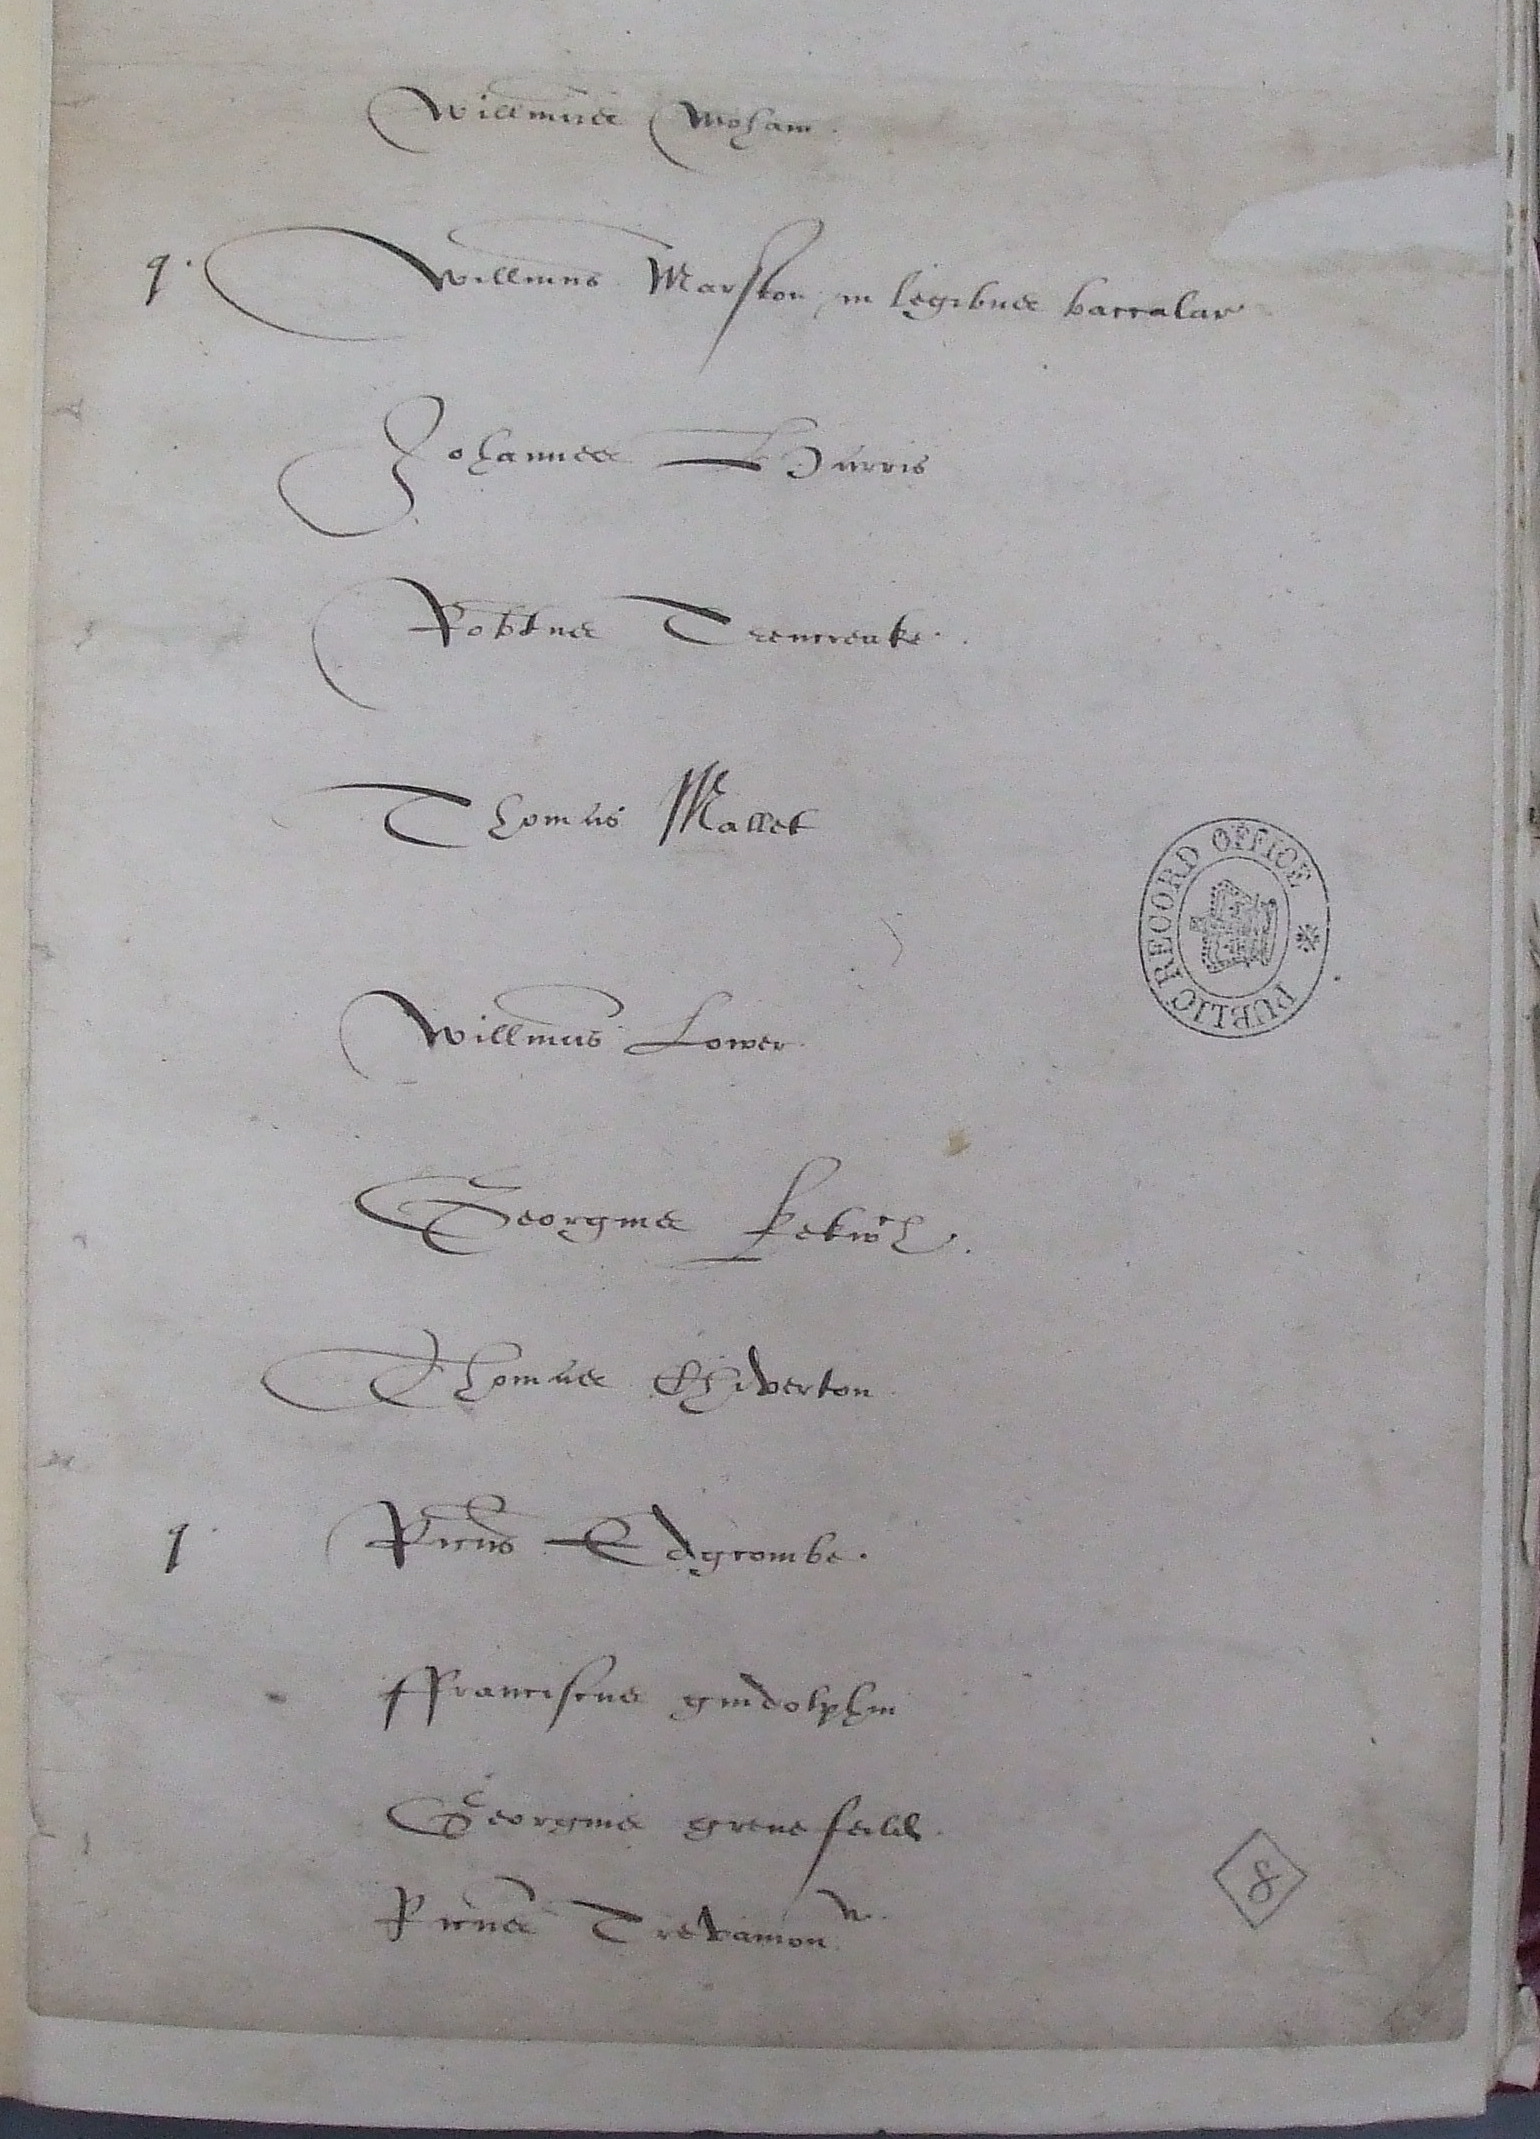 Willmus Moham
q. Willmus Marston in legibus baccalar
Johannes Harris
Robtus Trencreake
Thomas Mallet
Willmus Lower
Georgius Kekwch
Thomas Chiverton
q Ricus Edgcombe
ffranciscus gudolphin
Georgius grenefeild
Ricus Trevanion
PUBLIC RECORD OFFICE
8